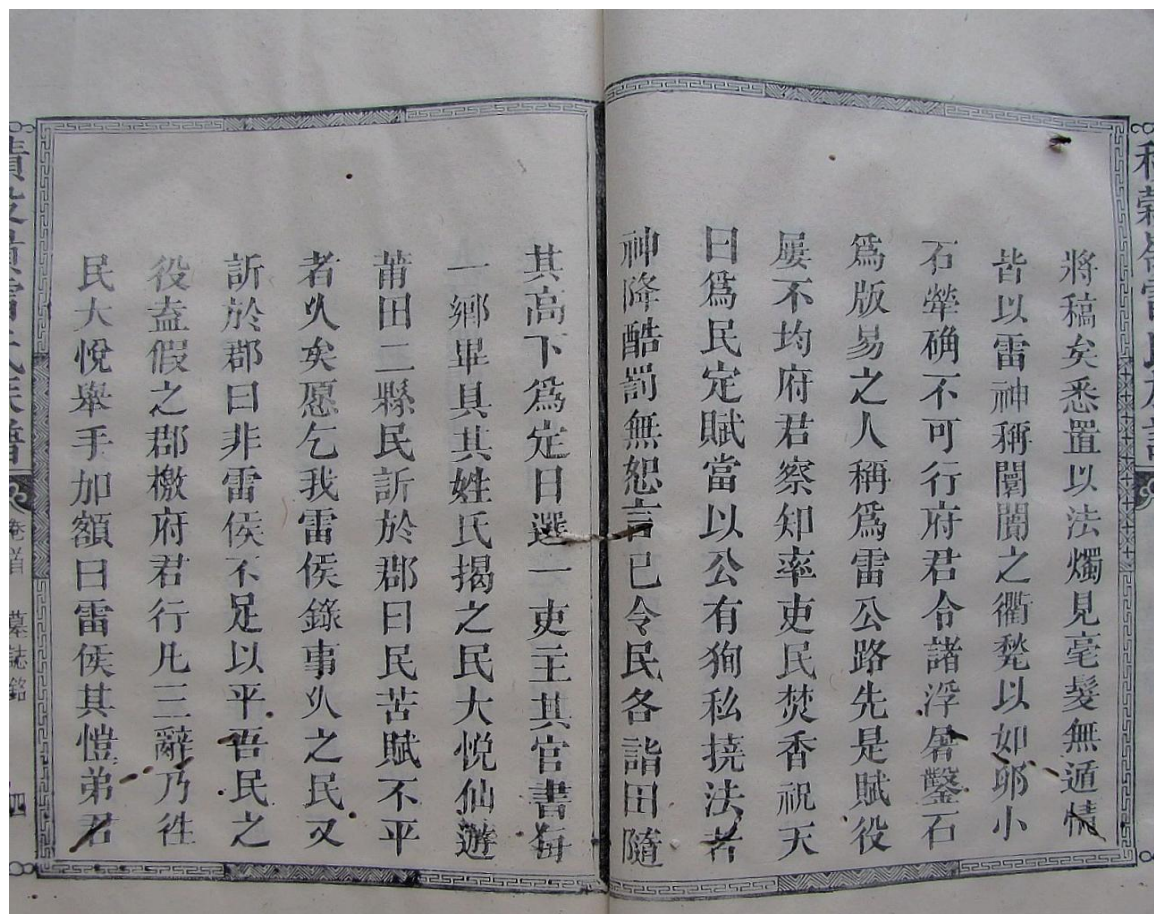 將稿矣悉置以法燭見毫髮無遁情
皆以雷神稱闤闠之衢甃以如卵小
石犖确不可行府君令諸浮屠鑿石
爲版易之人稱爲雷公路先是賦役
屢不均府君察知率吏民焚香祝天
曰爲民定賦當以公有狥私撓法者
神降酷罰無恕言已令民各詣田隨
其高下爲定日選一吏主其官書每
一鄉畢具其姓氏揭之民大悅仙遊
莆田二縣民訴於郡曰民苦賦不平
者乆矣愿乞我雷侯錄事乆之民又
訢於郡曰非雷侯不足以平吾民之
役盍假之郡檄府君行凡三辭乃徃
民大悅舉手加額曰雷侯其愷弟君
氏族譜
卷首
墓誌銘
四